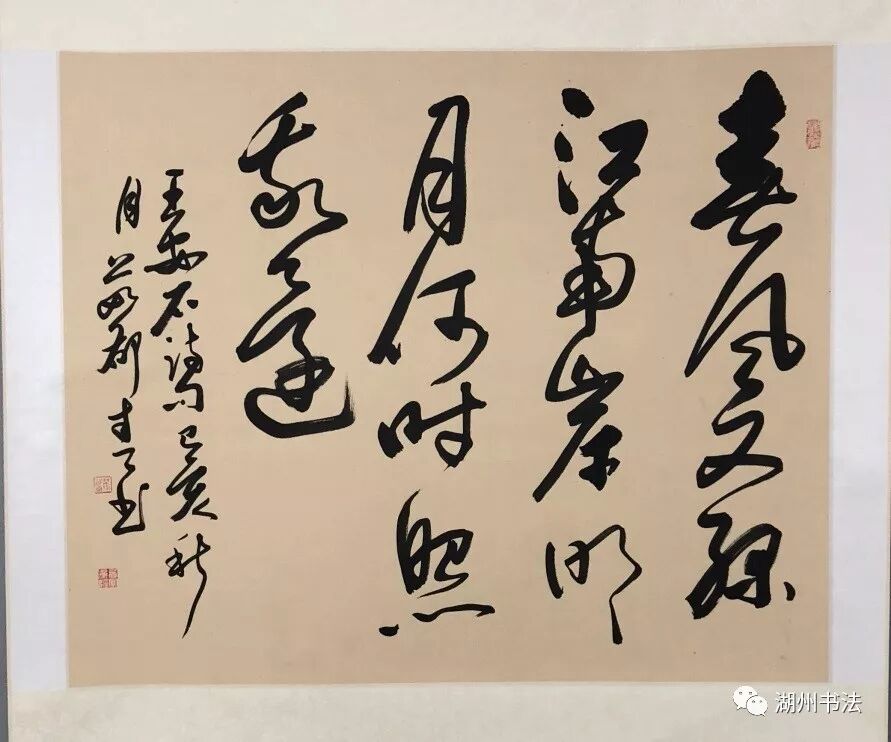 春风又绿
江南岸明
月何时照
我还
王安石诗句己亥秋
月书
湖州书法